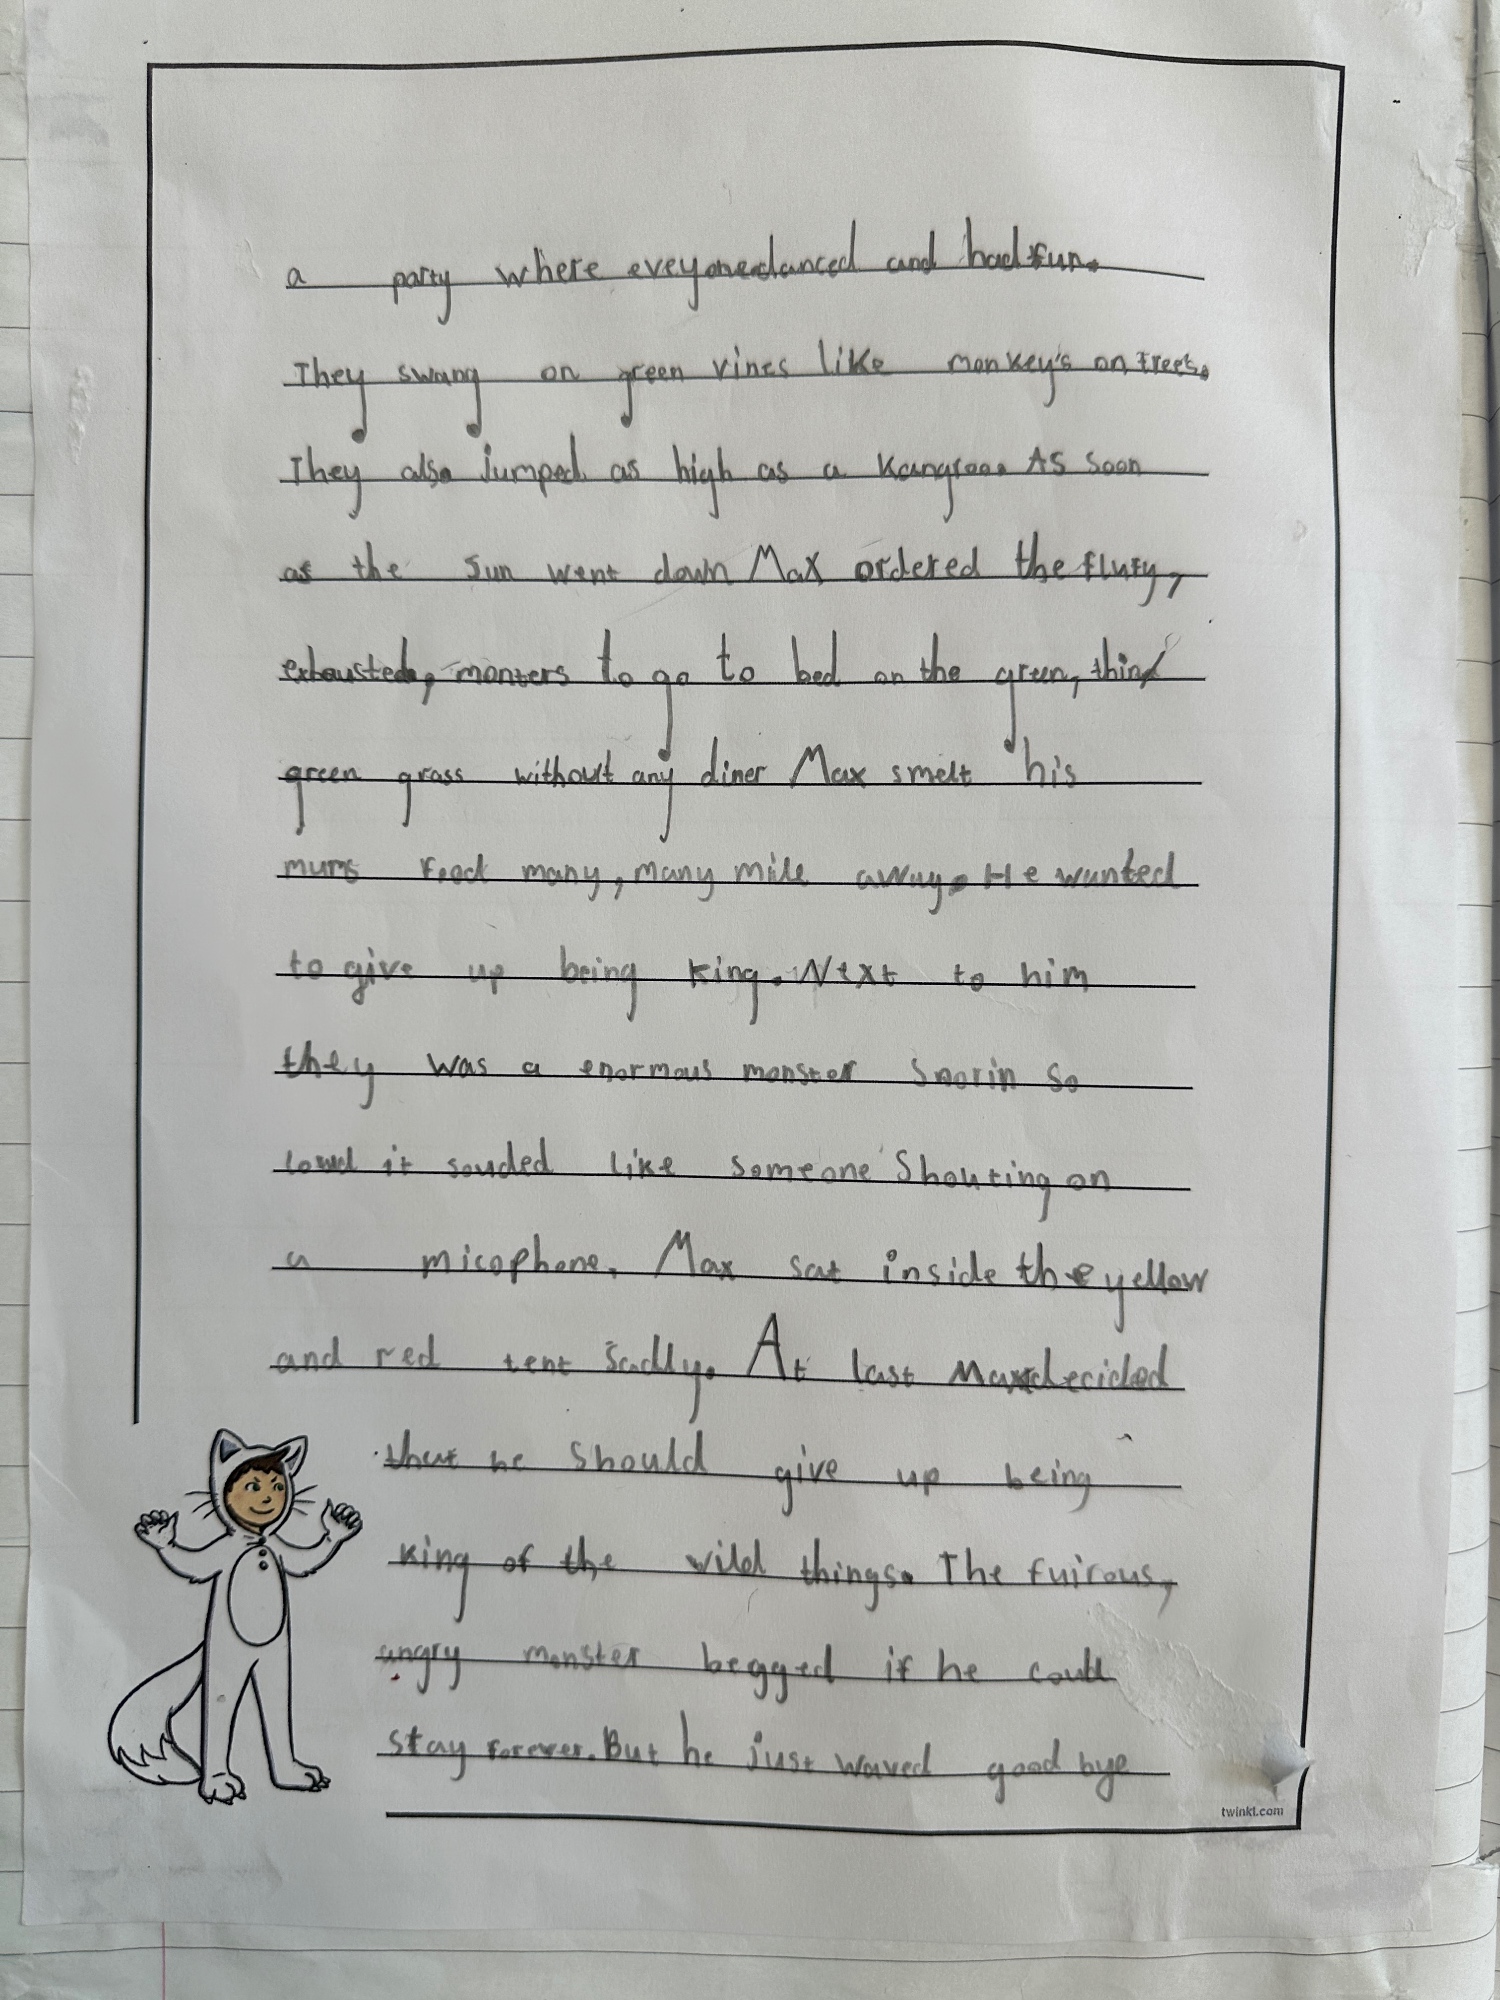 a party where eveyone danced and had fun.
They swang on green vines like monkey's on trees.
They also jumped as high as a kangroo. As soon
as the sun went down Max ordered the flufy,
exhausted, monters to go to bed on the green, thin
green grass without any diner Max smelt his
mums food many, many mile away. He wanted
to give up being king. Next to him
they was a enormous monster snorin so
loud it souded like someone shouting on
a micophone. Max sat inside the yellow
and red tent sadly. At last Max decided
that he should give up being
king of the wild things. The fuirous,
angry monster begged if he could
stay forever. But he just waved good bye
twinkl.com